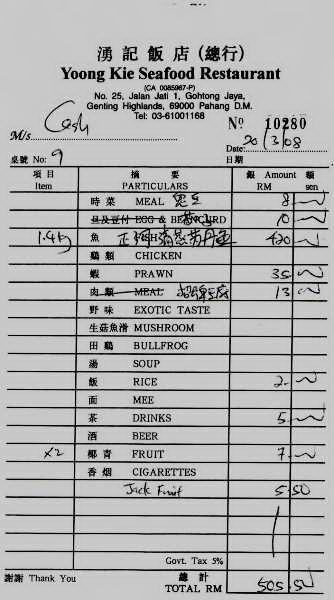 湧記飯店(總行)
Yoong Kie Seafood Restaurant
(CA 0085967-P)
No. 25, Jalan Jati 1, Gohtong Jaya,
Genting Highlands, 69000 Pahang D.M.
Tel: 03-61001168
M/s Cash
Nº 10280
Date: 20/3/08
桌號 No: 9 日期
項目 摘要 銀 Amount 額
Item PARTICULARS RM sen
時菜 MEAL 8
旦及豆付 EGG & BEANCURD 10
1.4kg 魚 FISH 420
鷄類 CHICKEN
蝦 PRAWN 35
肉類 MEAL 豆腐 13
野味 EXOTIC TASTE
生菇魚滑 MUSHROOM
田鷄 BULLFROG
湯 SOUP
飯 RICE 2
面 MEE
茶 DRINKS 5
酒 BEER
x2 椰青 FRUIT 7
香烟 CIGARETTES
Jack Fruit 5.50
Govt. Tax 5%
謝謝 Thank You 總計
TOTAL RM 505.50